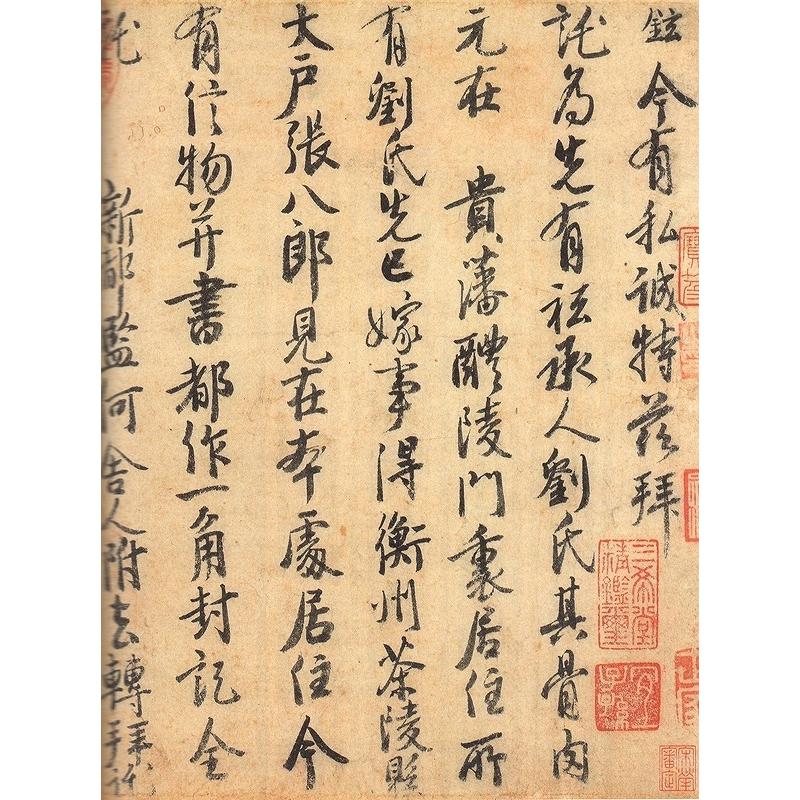 鉉今有私誠特茲拜
託為先有祗承人劉氏其骨肉
元在　貴藩醴陵門裏居住所
有劉氏先已嫁事得衡州茶陵縣
大戶張八郎見在本處居住今
有信物并書都作一角封記全
託　新都監何舍人附去轉拜託
三希堂精鑑璽
宜子孫